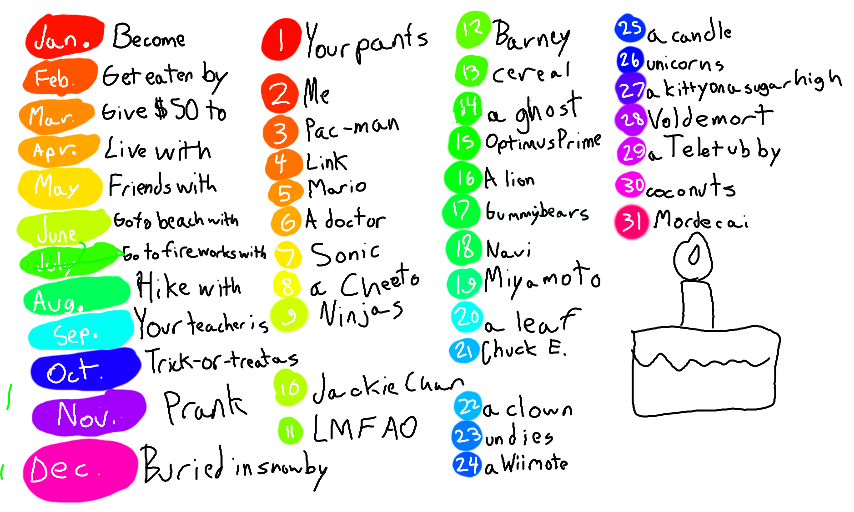 Jan. Become
Feb. Get eaten by
Mar. Give $50 to
Apr. Live with
May Friends with
June Go to beach with
July Go to fireworks with
Aug. Hike with
Sep. Your teacher is
Oct. Trick-or-treat as
Nov. Prank
Dec. Buried in snow by
1 Your pants
2 Me
3 Pac-man
4 Link
5 Mario
6 A doctor
7 Sonic
8 a Cheeto
9 Ninjas
10 Jackie Chan
11 LMFAO
12 Barney
13 cereal
14 a ghost
15 Optimus Prime
16 A lion
17 Gummybears
18 Navi
19 Miyamoto
20 a leaf
21 Chuck E.
22 a clown
23 undies
24 a Wiimote
25 a candle
26 unicorns
27 a kitty on a sugar high
28 Voldemort
29 a Teletubby
30 coconuts
31 Mordecai